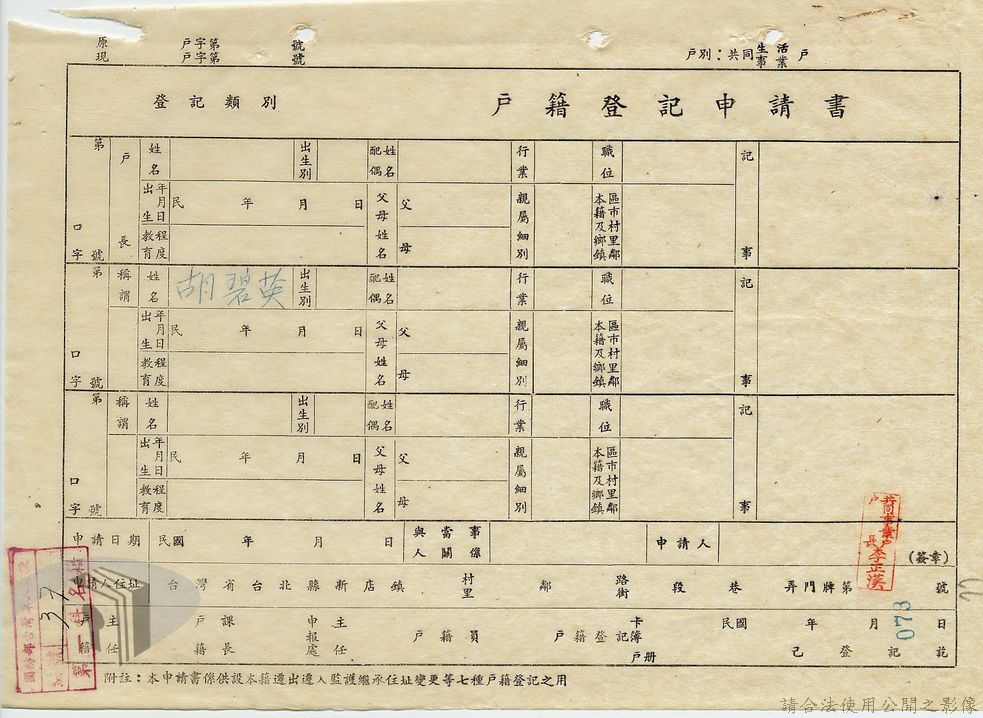 原 戶字第 號
現 戶字第 號
戶別：共同生活事業戶
登記類別 戶籍登記申請書
第 口 字 號 戶長 姓名 出生別 配偶姓名 行業 職位 記事
出生年月日 民 年 月 日 父母姓名 父 母 親屬細別 本籍及鄉鎮區市村里鄰
教育程度
第 口 字 號 稱謂 姓名 胡碧英 出生別 配偶姓名 行業 職位 記事
出生年月日 民 年 月 日 父母姓名 父 母 親屬細別 本籍及鄉鎮區市村里鄰
教育程度
第 口 字 號 稱謂 姓名 出生別 配偶姓名 行業 職位 記事
出生年月日 民 年 月 日 父母姓名 父 母 親屬細別 本籍及鄉鎮區市村里鄰
教育程度
申請日期 民國 年 月 日 與當事人關係 申請人 (簽章)
共同事業戶
戶長李正漢
申請人住址 台灣省台北縣新店鎮 村里 鄰 路街 段 巷 弄門牌第 號
戶籍主任 戶籍課長 申報處主任 戶籍員 戶籍登記卡簿戶冊 民國 年 月 日 己登記訖
073
37
第一科
附註：本申請書係供設本籍遷出遷入監護繼承住址變更等七種戶籍登記之用
請合法使用公開之影像